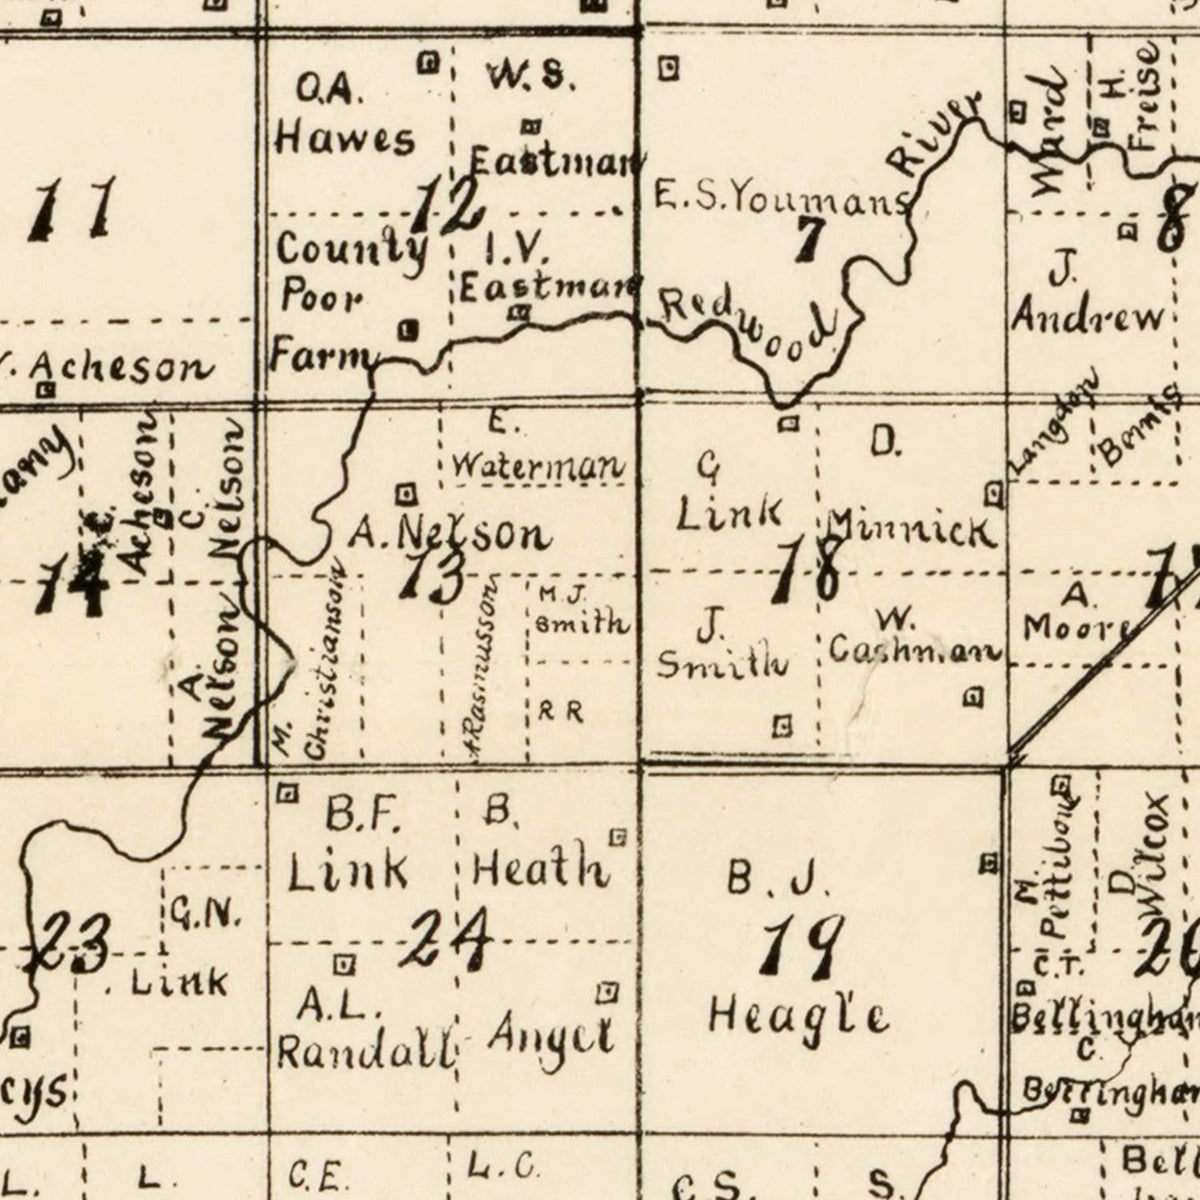 O.A.
Hawes
W.S.
Eastman
11
12
County
Poor
Farm
I.V.
Eastman
E.S.Youmans
7
Redwood River
Ward
H.
Freise
8
J.
Andrew
Acheson
14
Acheson
C.
Nelson
A.
Nelson
E.
Waterman
A. Nelson
13
M.
Christianson
A Rasmusson
M J.
Smith
R R
G
Link
D.
Minnick
18
J.
Smith
W.
Cashman
Langdon
Bemis
A.
Moore
B.F.
Link
B.
Heath
23
G.N.
Link
24
A.L.
Randall
Angel
B.J.
19
Heagle
M.
Pettibone
D.
Wilcox
20
C.T.
Bellingham
C.
Bellingham
L.
L.
C.E.
L.C.
C.S.
S.
Bell